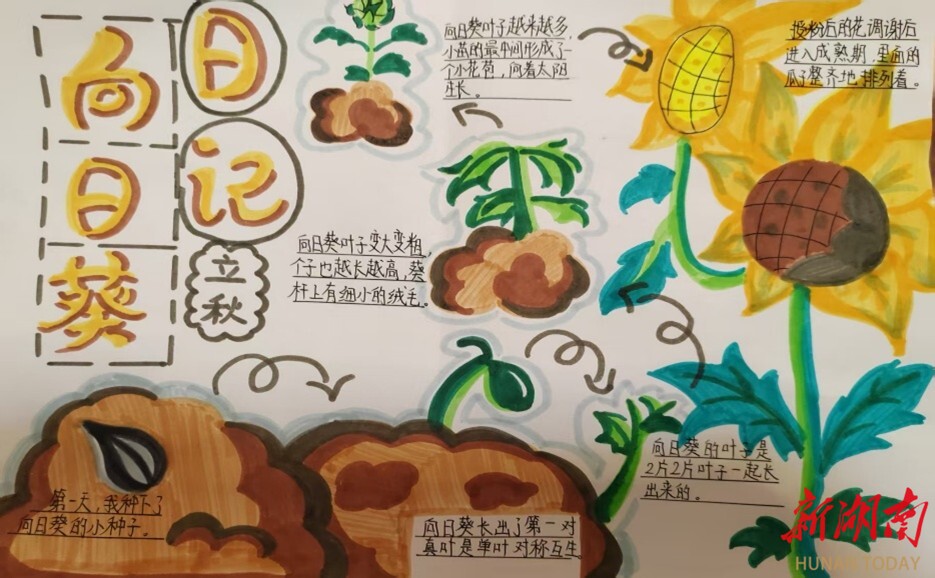 向日葵
日记
立秋
向日葵叶子越来越多,
小苗的最中间形成了
个小花苞,向着太阳
生长。
授粉后的花凋谢后
进入成熟期,里面的
瓜子整齐地排列着。
向日葵叶子变大变粗,
个子也越长越高,葵
杆上有细小的绒毛。
第一天,我种下了
向日葵的小种子。
向日葵长出了第一对
真叶是单叶对称互生
向日葵的叶子是
2片2片叶子一起长
出来的。
新湖南
HUNAN TODAY